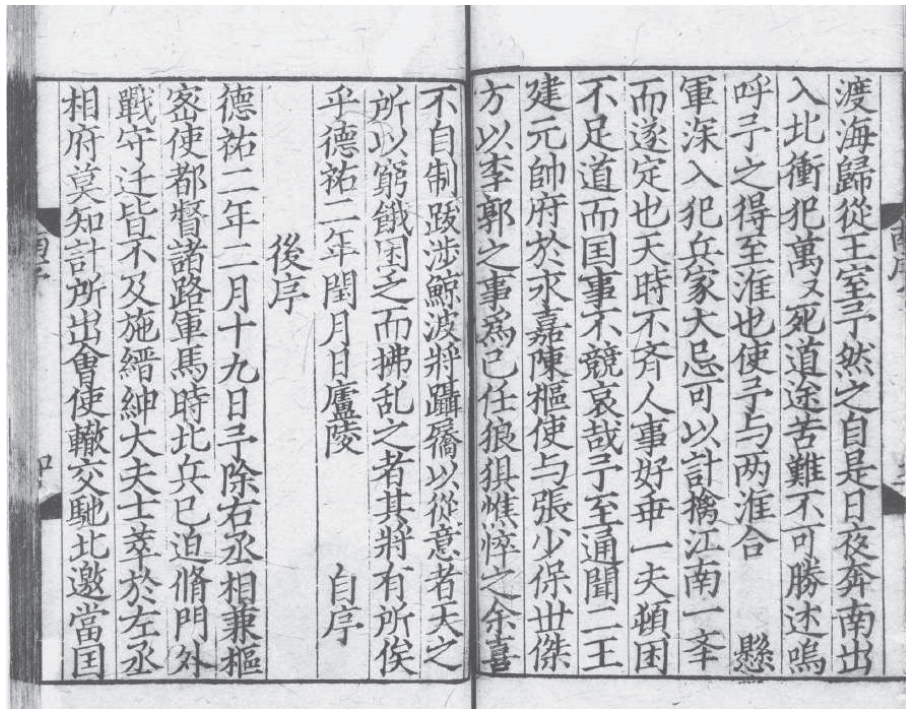 渡海歸從王室予然之自是日夜奔南出
入北衝犯萬叉死道途苦難不可勝述嗚
呼予之得至淮也使予与两淮合　懸
軍深入犯兵家大忌可以計擒江南一夲
而遂定也天時不齐人事好乖一夫頓困
不足道而囯事不競哀哉予至通聞二王
建元帥府於永嘉陳樞使与張少保世傑
方以李郭之事爲己任狼狽憔悴之余喜
不自制跋涉鯨波將躡屩以從意者天之
所以窮餓困乏而拂乱之者其將有所俟
乎德祐二年閏月日廬陵　自序
後序
德祐二年二月十九日予除右丞相兼樞
宻使都督諸路軍馬時北兵已迫脩門外
戰守迁皆不及施縉紳大夫士萃於左丞
相府莫知計所出會使轍交馳北邀當囯